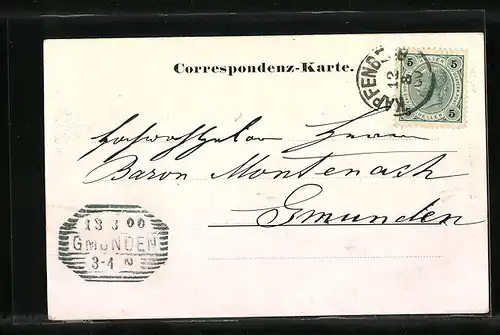 Correspondenz-Karte.
KAPFENB
12
5
5
5
5
HELLER
Hochwohlgeboren Herrn
Baron Montenach
Gmunden
13 3 00
GMUNDEN
3-4 N